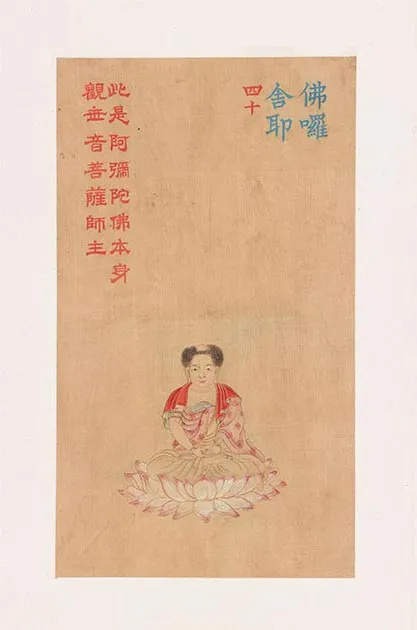 佛囉
舍耶
四十
此是阿彌陀佛本身
觀世音菩薩師主